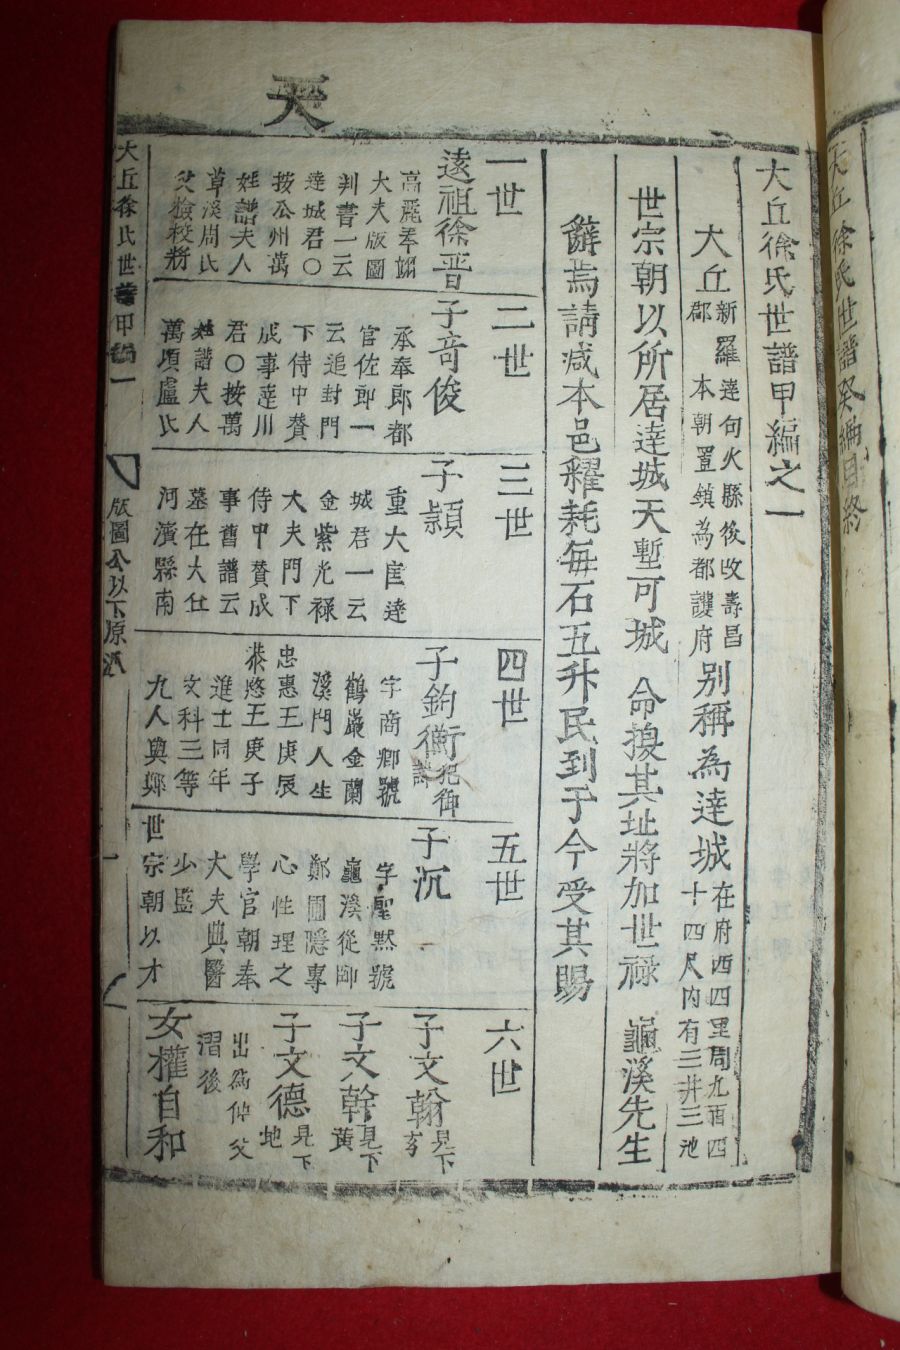 大丘徐氏世譜癸編目終
天
大丘徐氏世譜甲編之一
大丘
新羅達句火縣後改壽昌
郡本朝置鎮為都護府
別稱為達城
在府西四里周九百四
十四尺內有三井三池
世宗朝以所居達城天塹可城 命換其址將加世祿 龜溪先生
辭焉請减本邑糴耗每石五升民到于今受其賜
一世
遠祖徐晉
高麗奉翊
大夫版圖
判書一云
達城君〇
按公州萬
姓譜夫人
草溪周氏
父檢校將
二世
子奇俊
承奉郎都
官佐郎一
云追封門
下侍中贊
成事達川
君〇按萬
姓譜夫人
萬頃盧氏
三世
子頴
重大匡達
城君一云
金紫光祿
大夫門下
侍中贊成
事舊譜云
墓在大丘
河濱縣南
四世
子鈞衡
字商卿號
鶴巖金蘭
溪門人生
忠惠王庚辰
恭愍王庚子
進士同年
文科三等
九人與鄭
五世
子沉
字聖默號
龜溪從師
鄭圃隱專
心性理之
學官朝奉
大夫典醫
少監
世宗朝以才
六世
子文翰
見下
玄
子文幹
見下
黃
子文德
見下
地
出為伯父
溍後
女權自和
大丘徐氏世譜甲編一
版圖公以下原派
一